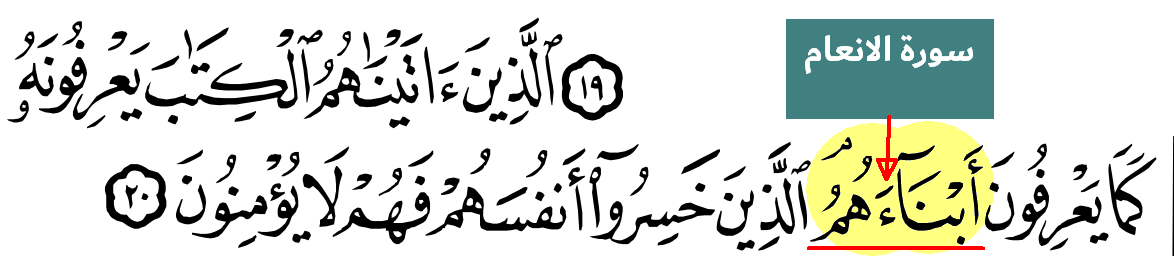 سورة الانعام
١٩ ٱلَّذِينَ ءَاتَيْنَٰهُمُ ٱلْكِتَٰبَ يَعْرِفُونَهُۥ
كَمَا يَعْرِفُونَ أَبْنَآءَهُمُۘ ٱلَّذِينَ خَسِرُوٓا۟ أَنفُسَهُمْ فَهُمْ لَا يُؤْمِنُونَ ٢٠